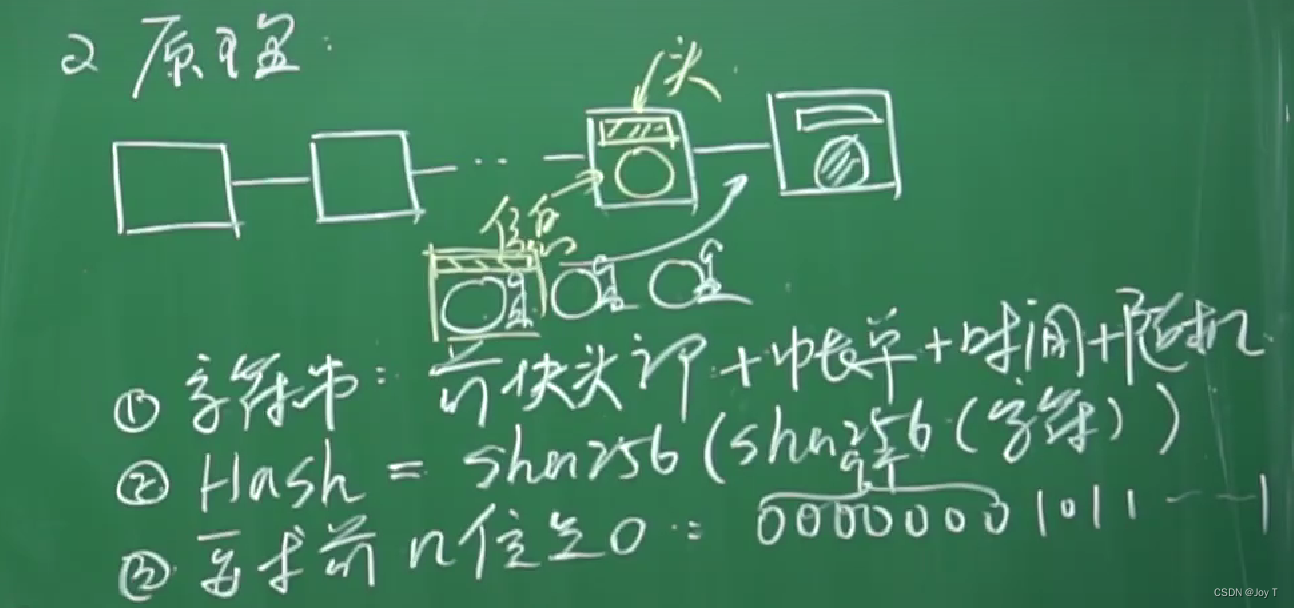 2 原理:
头
信息
① 字符串: 前块头部 + 帐单 + 时间 + 随机
② Hash = sha256 (sha256 (字符串))
n个
③ 要求前 n位是0: 0000000 1011 ---1
CSDN @Joy T